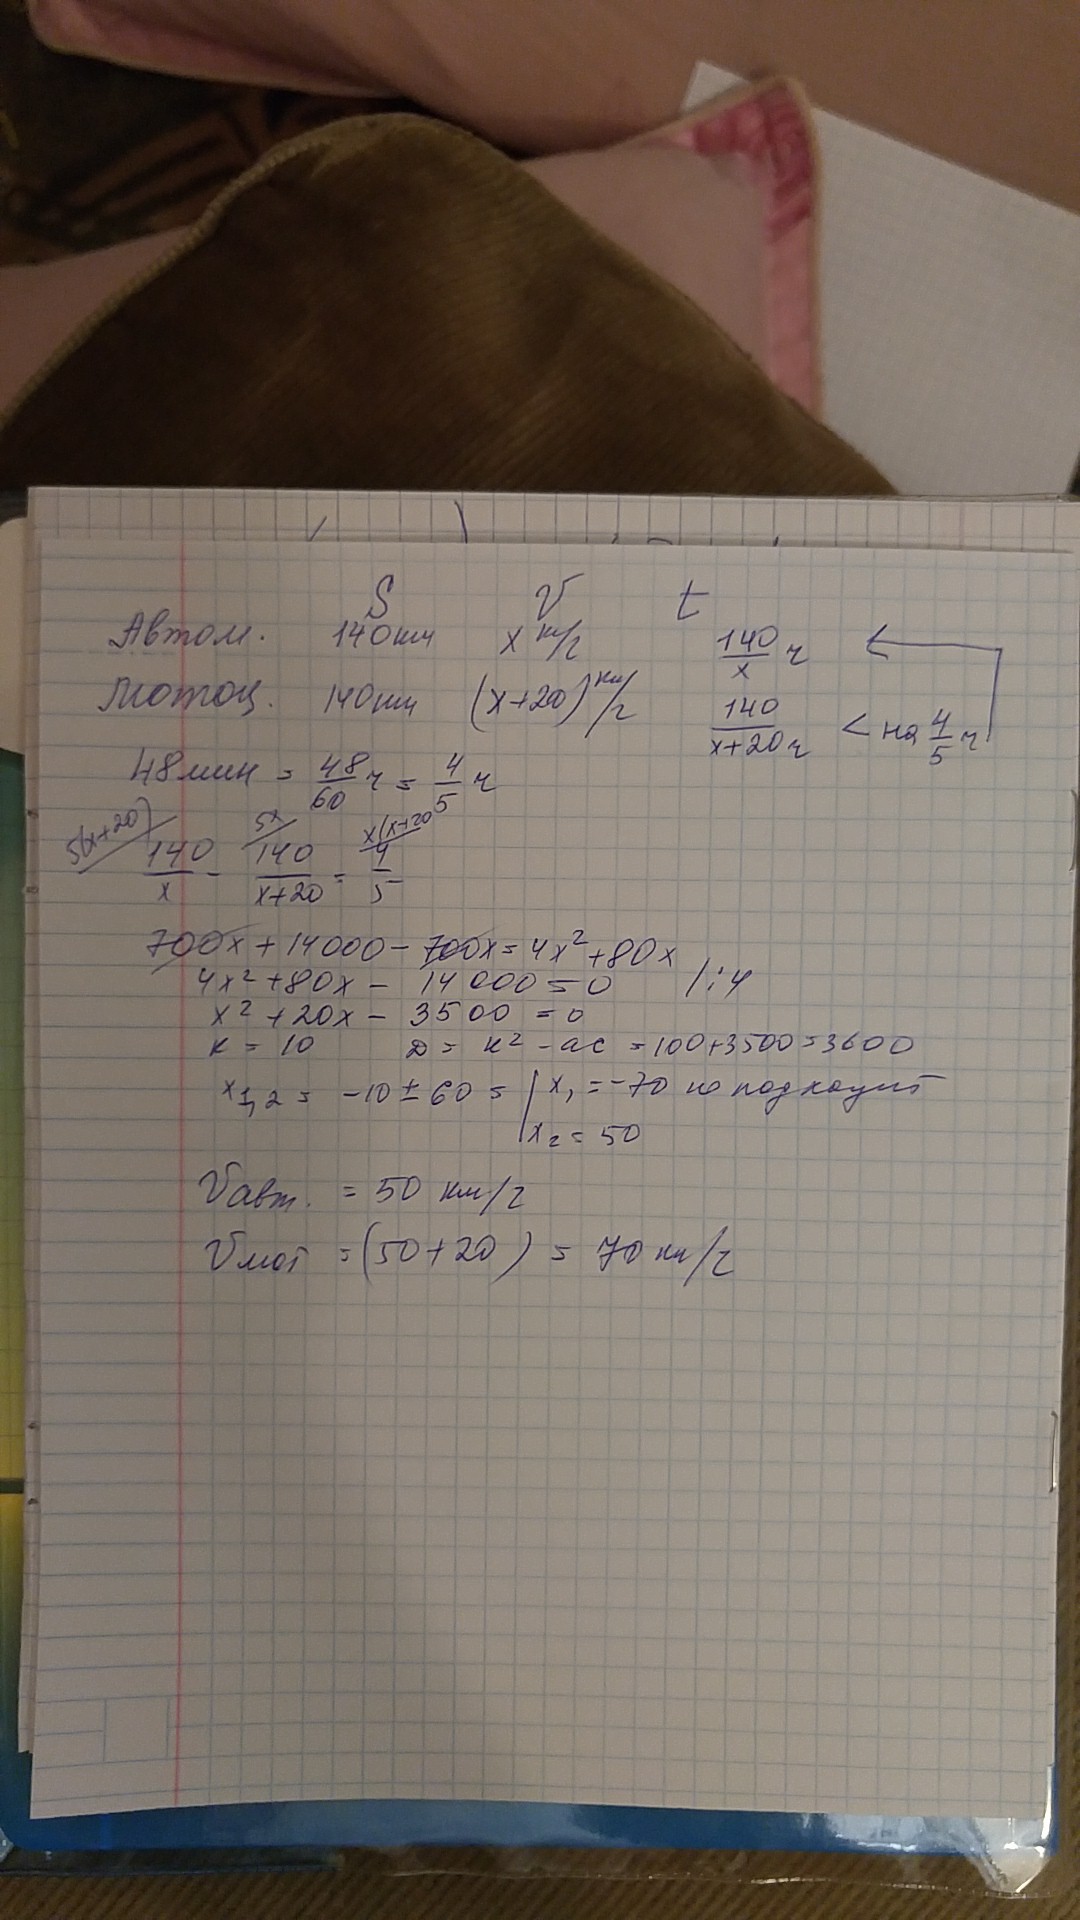 S V t
Автом. 140км x км/ч 140/x ч
Мотоц. 140км (x+20) км/ч 140/x+20 ч < на 4/5 ч
48мин = 48/60 ч = 4/5 ч
5(x+20) 5x x(x+20
140/x - 140/x+20 = 4/5
700x + 14000 - 700x = 4x² + 80x
4x² + 80x - 14000 = 0 /:4
x² + 20x - 3500 = 0
к = 10 D = к² - ac = 100+3500=3600
x1,2 = -10 ± 60 = x₁ = -70 не подходит
x₂ = 50
Vавт. = 50 км/ч
Vмот = (50+20) = 70 км/ч